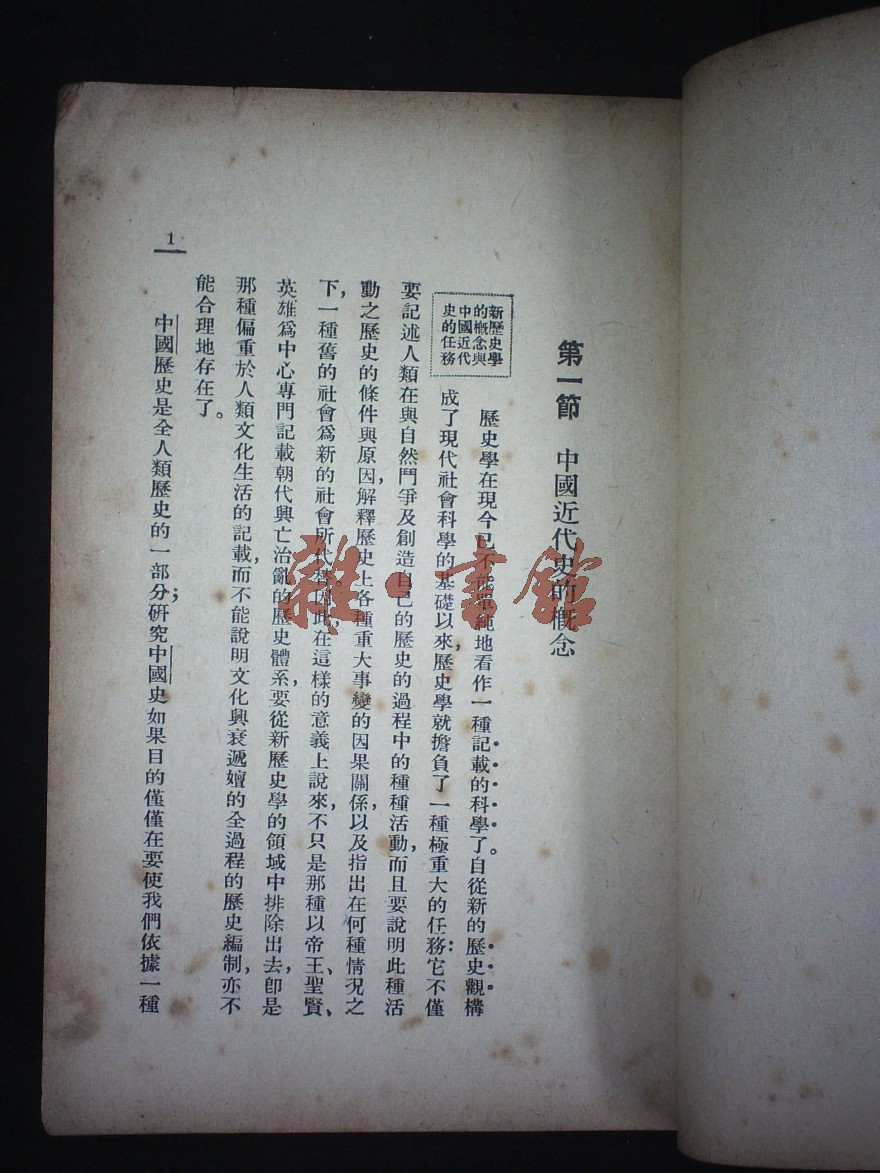 第一節 中國近代史的概念
新歷史學
的概念與
中國近代
史的任務
歷史學在現今已不能單純地看作一種記載的科學了。自從新的歷史觀構
成了現代社會科學的基礎以來，歷史學就擔負了一種極重大的任務：它不僅
要記述人類在與自然鬥爭及創造自己的歷史的過程中的種種活動，而且要說明此種活
動之歷史的條件與原因，解釋歷史上各種重大事變的因果關係，以及指出在何種情況之
下，一種舊的社會爲新的社會所代替。因此，在這樣的意義上說來，不只是那種以帝王、聖賢、
英雄爲中心專門記載朝代興亡治亂的歷史體系，要從新歷史學的領域中排除出去，卽是
那種偏重於人類文化生活的記載，而不能說明文化興衰遞嬗的全過程的歷史編制，亦不
能合理地存在了。
中國歷史是全人類歷史的一部分；研究中國史如果目的僅僅在要使我們依據一種
1
雜·書館